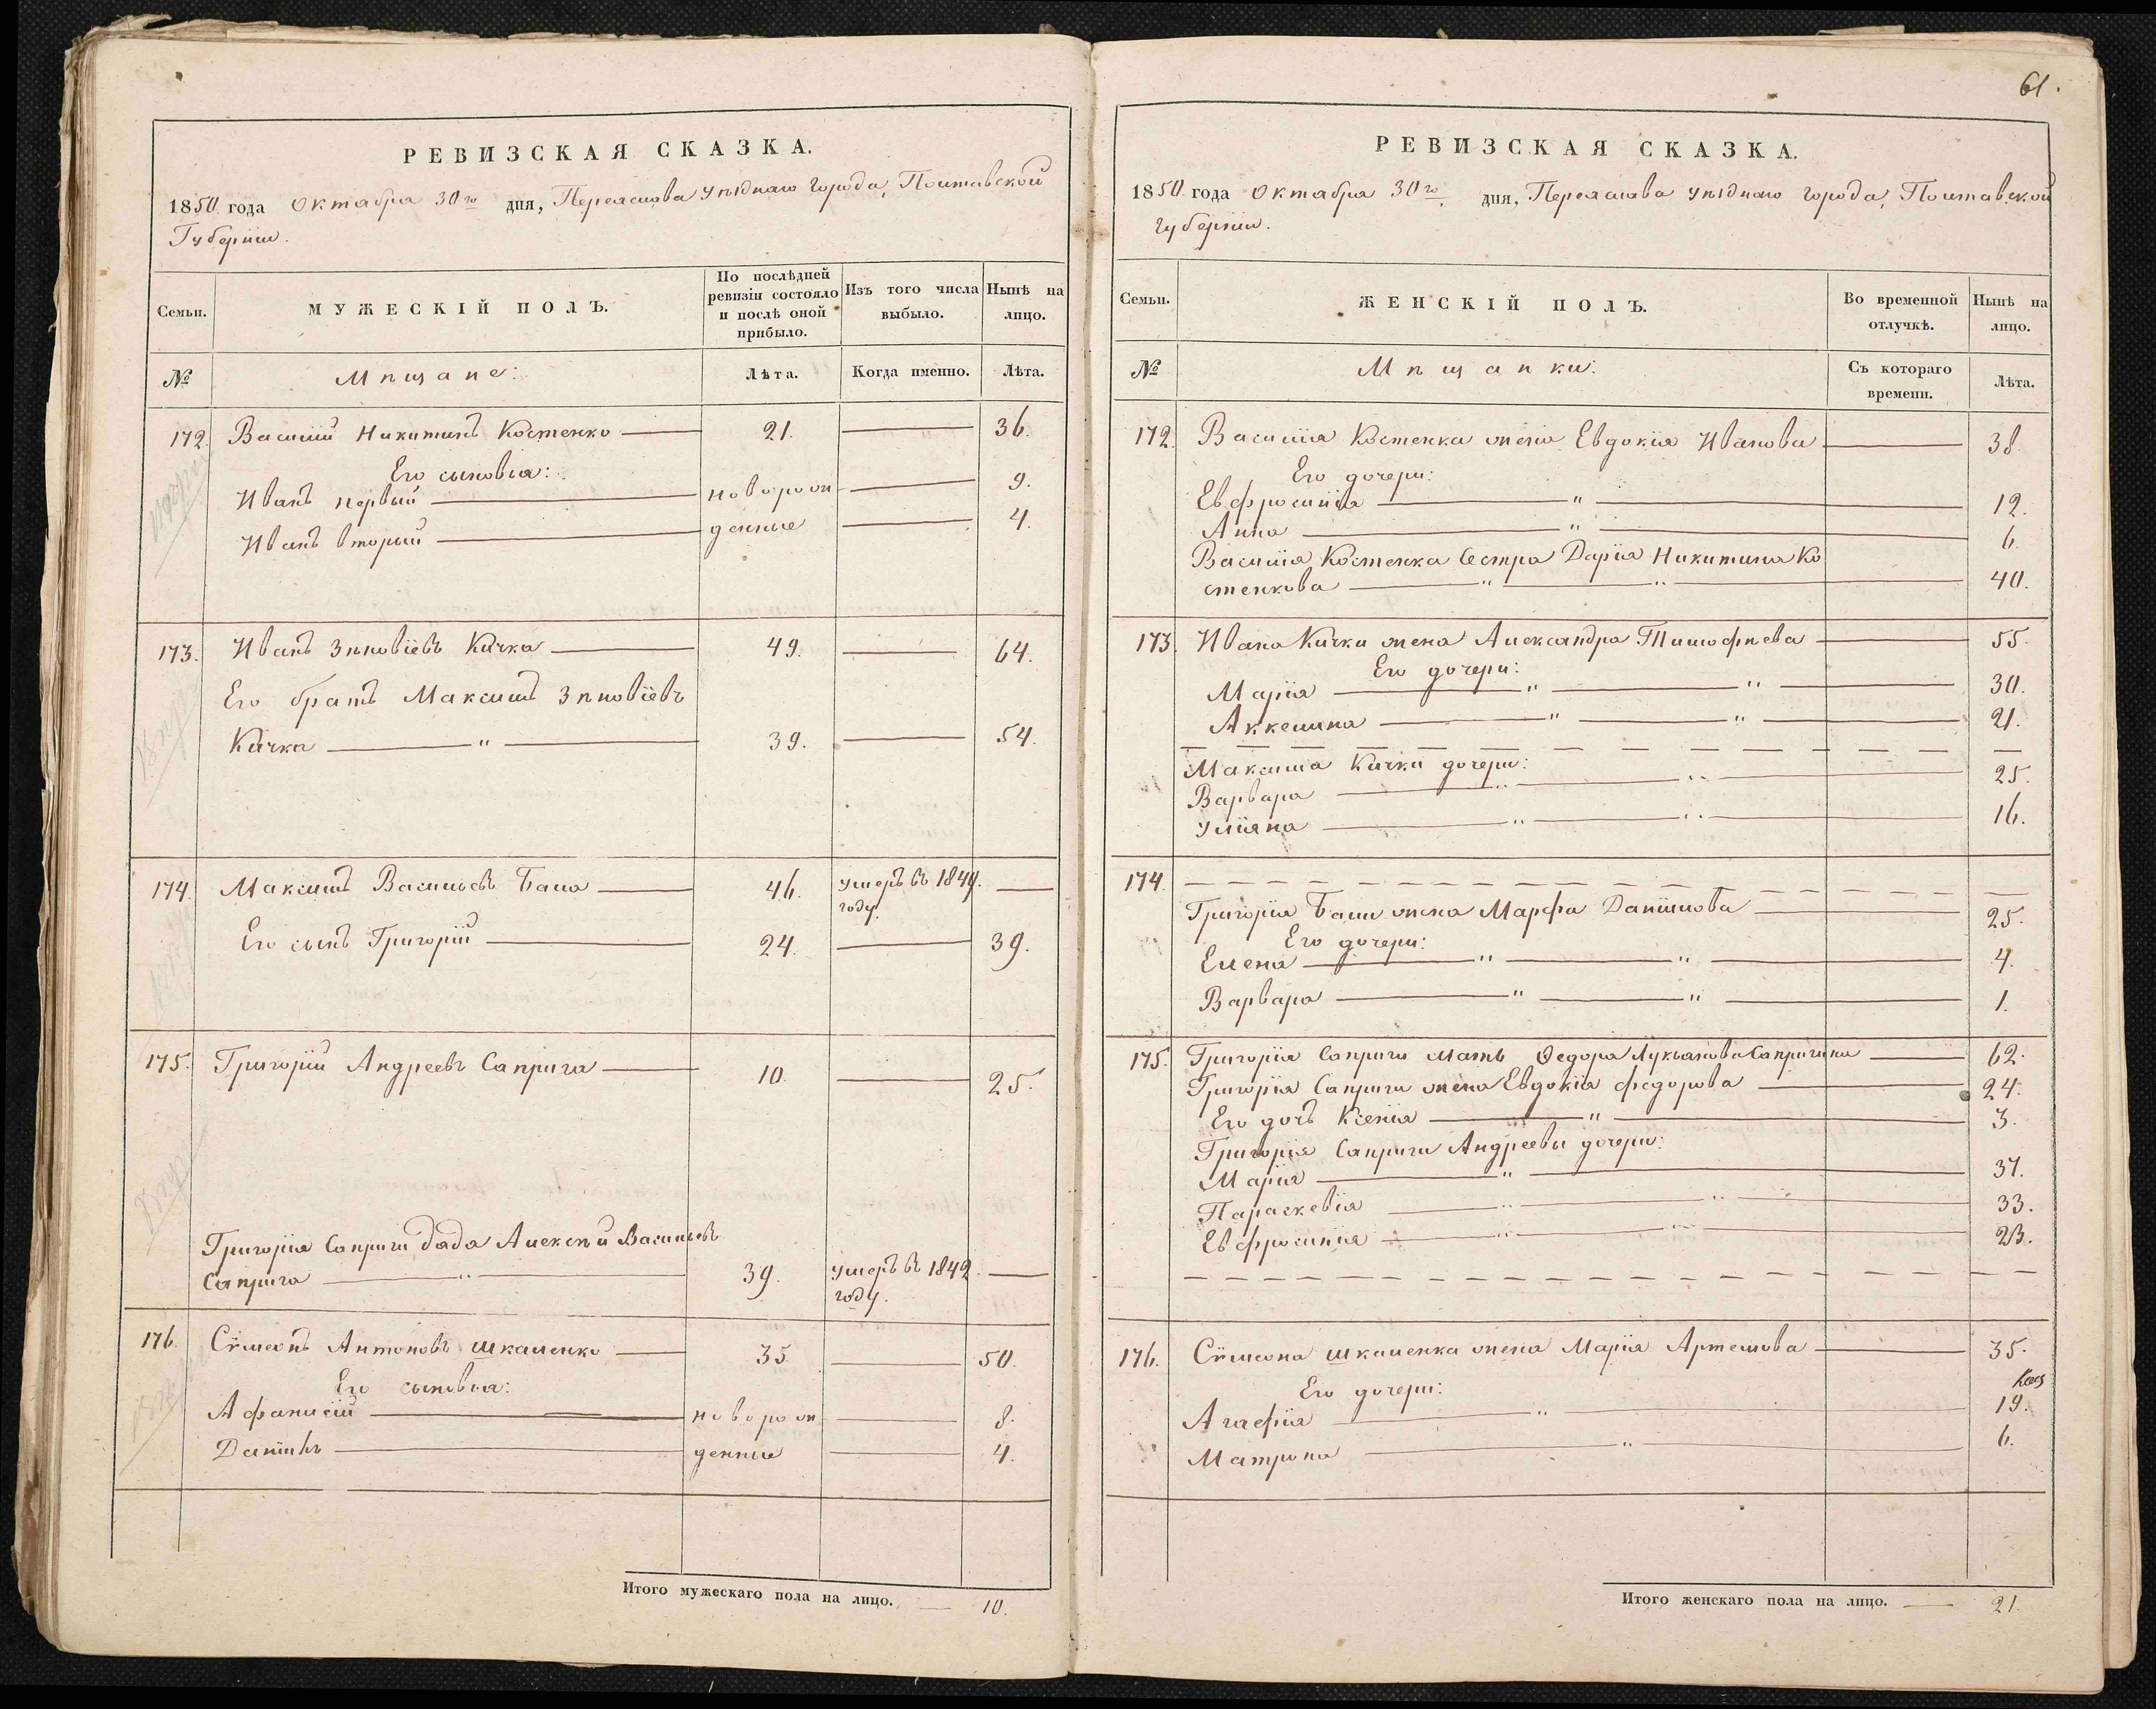 РЕВИЗСКАЯ СКАЗКА.
1850 года Октября 30го дня, Переяслова Уѣзднаго Города, Полтавской
Губерніи.
Семьи.
МУЖЕСКІЙ ПОЛЪ.
По послѣдней
ревизіи состояло
и послѣ оной
прибыло.
Изъ того числа
выбыло.
Нынѣ на
лицо.
№
Мѣщане:
Лѣта.
Когда именно.
Лѣта.
172. Василій Никитинъ Костенко 21. 36.
Его сыновья:
Иванъ первый новорож 9.
Иванъ вторый денные 4.
173. Иванъ Зѣновіевъ Кичка 49. 64.
Его братъ Максимъ Зѣновіевъ
Кичка " 39. 54.
174. Максимъ Васильевъ Бала 46. умеръ въ 1849.
году.
Его сынъ Григорій 24. 39.
175. Григорій Андреевъ Саприга 10. 25.
Григорія Саприги дядя Алексѣй Васильевъ
Саприга " 39. умеръ въ 1842.
году.
176. Сѵмеонъ Антоновъ Шкаленко 35. 50.
Его сыновья:
Афанасій новорож 8.
Даніилъ денные 4.
Итого мужескаго пола на лицо. 10.
61.
РЕВИЗСКАЯ СКАЗКА.
1850 года Октября 30го дня, Переяслава Уѣзднаго города, Полтавской
губерніи.
Семьи.
ЖЕНСКІЙ ПОЛЪ.
Во временной
отлучкѣ.
Нынѣ на
лицо.
№
Мѣщанки:
Съ котораго
времени.
Лѣта.
172. Василія Костенка жена Евдокія Иванова 38.
Его дочери:
Евфросинія " 12.
Анна " 6.
Василія Костенка Сестра Дарія Никитина Ко
стенкова " " 40.
173. Ивана Кички жена Александра Тимофѣева 55.
Его дочери:
Марія " " 30.
Аккелина " " 21.
Максима Кички дочери:
Варвара " " 25.
Уліяна " " 16.
174.
Григорія Балы жена Марфа Даніилова 25.
Его дочери:
Елена " " 4.
Варвара " " 1.
175. Григорія Саприги мать Ѳедора Лукьянова Сапригина 62.
Григорія Саприги жена Евдокія Федорова 24.
Его дочь Ксенія " 3.
Григорія Саприги Андреевы дочери:
Марія " 37.
Параскевія " " 33.
Евфросинія " " 23.
176. Сѵмеона Шкаленка жена Марія Артемова 35.
Его дочери:
Агафія " 19.
Матрона " 6.
Итого женскаго пола на лицо. 21.